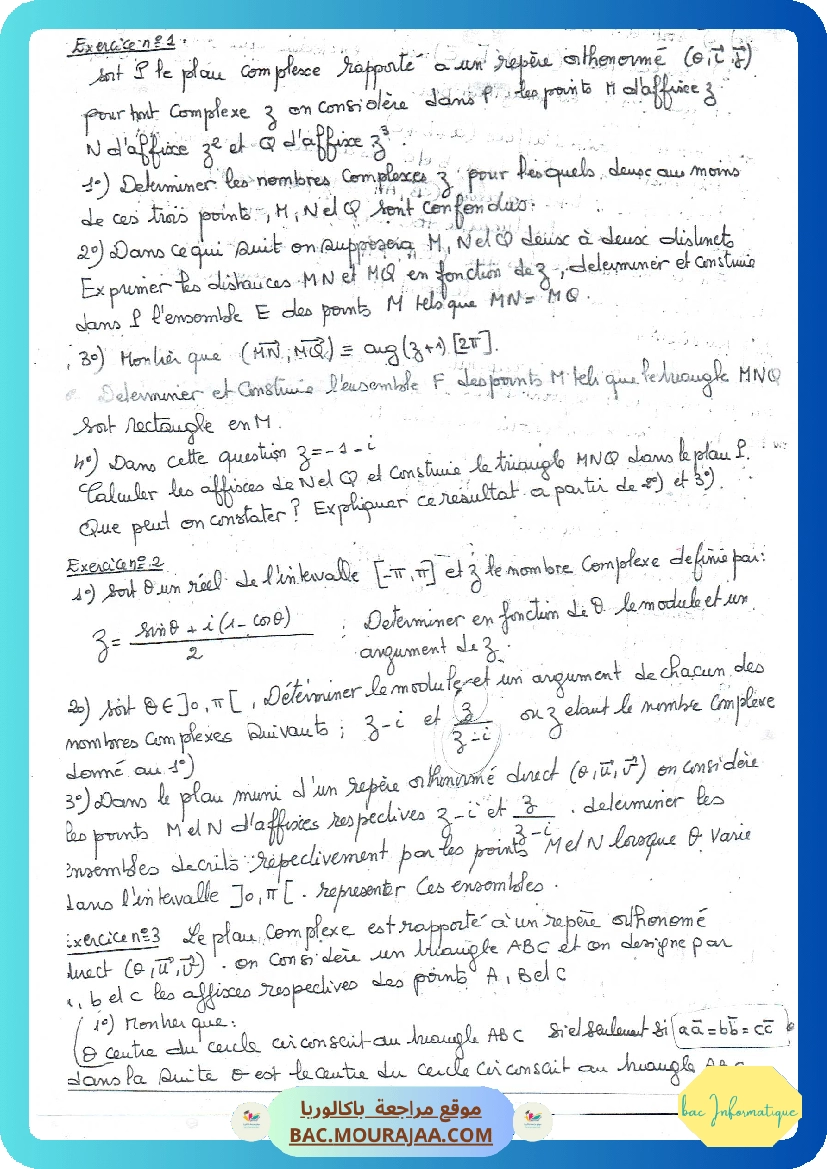 Exercice n° 1.
Soit P le plan complexe rapporté a un repère orthonormé (O, i, j)
pour tout complexe z on considère dans P. les points M d'affixe z
N d'affixe z² et Q d'affixe z³.
1°) Determiner les nombres complexes z pour lesquels deux au moins
de ces trois points, M, N et Q sont confondus.
2°) Dans ce qui suit on supposera M, N et Q deux à deux distincts
Exprimer les distances MN et MQ en fonction de z, determiner et construire
dans P l'ensemble E des points M tels que MN = MQ.
3°) Montrer que (MN, MQ) ≡ arg(z+1) [2π].
Determiner et Construire l'ensemble F des points M tels que le triangle MNQ
soit rectangle en M.
4°) Dans cette question z = -1 - i
Calculer les affixes de N et Q et construire le triangle MNQ dans le plan P.
Que peut on constater ? Expliquer ce resultat a partir de 2°) et 3°).
Exercice n° 2
1°) Soit θ un réel de l'intervalle [-π, π] et z le nombre complexe definie par:
z = (sinθ + i(1 - cosθ)) / 2 ; Determiner en fonction de θ le module et un
argument de z.
2°) Soit θ ∈ ]0, π[, Déterminer le module et un argument de chacun des
nombres complexes suivants ; z - i et z / (z - i) ou z etant le nombre complexe
donné au 1°)
3°) Dans le plan muni d'un repère orthonormé direct (O, u, v) on considère
les points M et N d'affixes respectives z - i et z / (z - i) . determiner les
ensembles decrits répectivement par les points M et N lorsque θ varie
dans l'intervalle ]0, π[. representer ces ensembles.
Exercice n° 3 Le plan complexe est rapporté à un repère orthonomé
direct (O, u, v) . on considère un triangle ABC et on designe par
a, b et c les affixes respectives des points A, B et C
1°) Montrer que:
O centre du cercle circonscrit au triangle ABC si et seulement si aā = bb̄ = cc̄
dans la suite O est le centre du cercle circonscrit au triangle ABC
موقع مراجعة باكالوريا
BAC.MOURAJAA.COM
bac Informatique